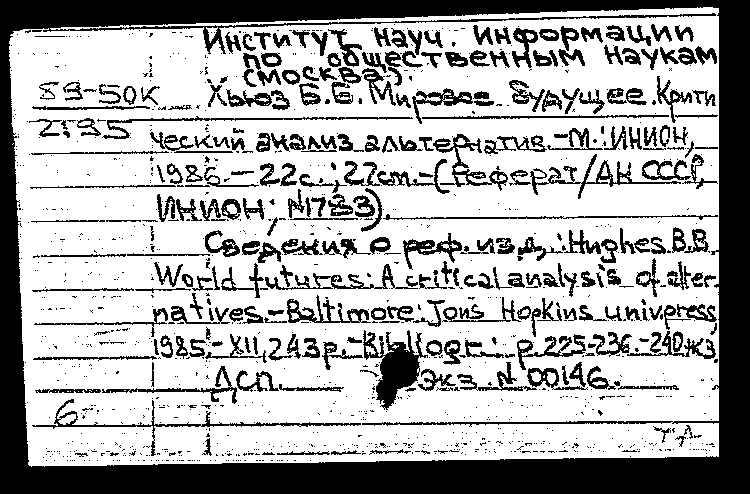 Институт науч. информации
по общественным наукам
(москва).
89-50К Хьюз Б.Б. Мировое будущее. Крити
2:95
ческий анализ альтернатив.-М.: ИНИОН,
1986.- 22с.; 27см.-(Реферат/АН СССР,
ИНИОН; №1783).
Сведения о реф. изд.: Hughes B.B.
World futures: A critical analysis of alter-
natives.-Baltimore: Jons Hopkins univ.press,
1985.-XII, 243p.-Bibliogr.: p.225-236.-240экз.
Дсп. Экз. № 00146.
6